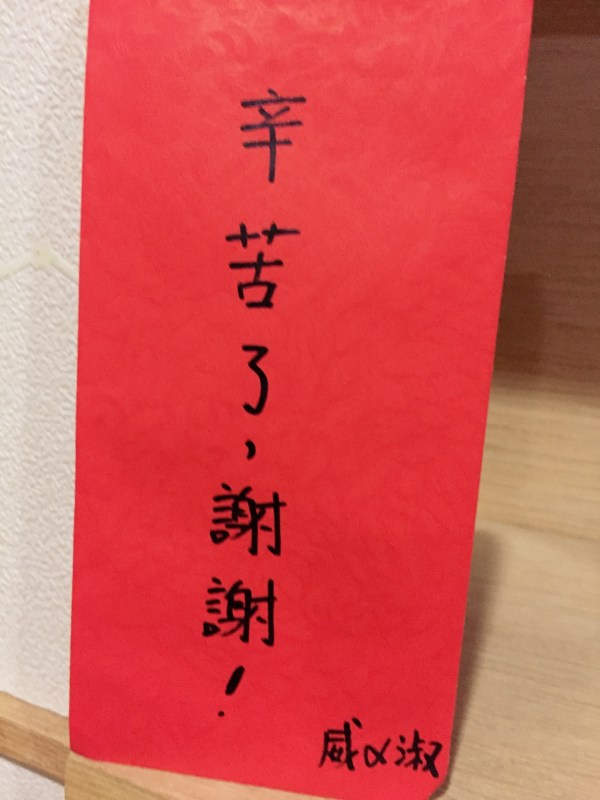 辛苦了,謝謝!
威&淑